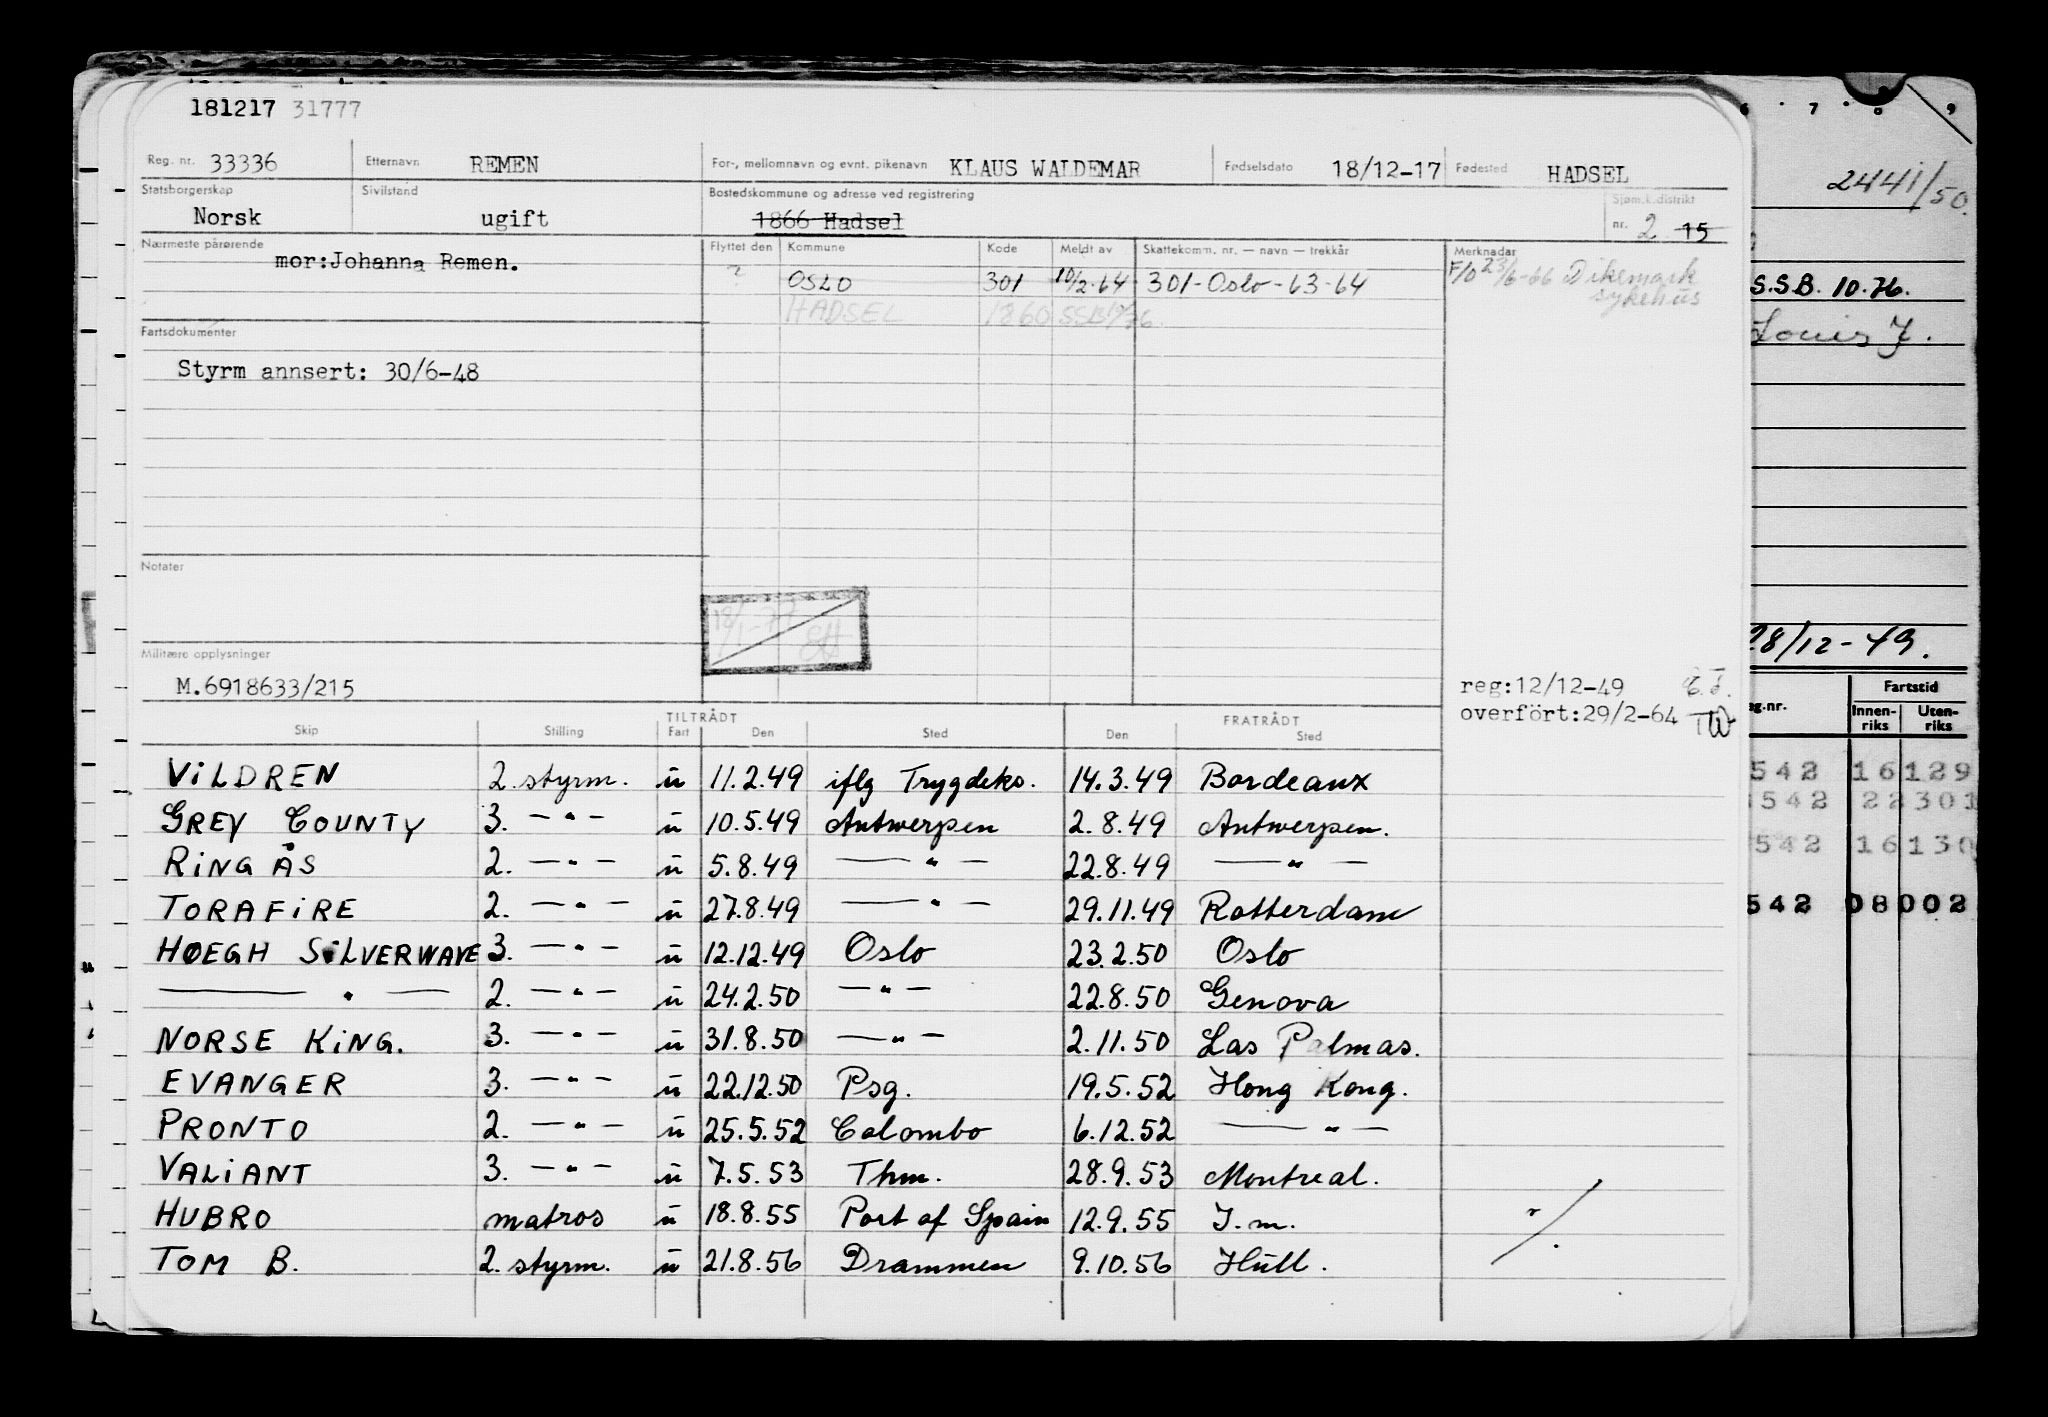 181217 31777
Reg. nr. 33336 Etternavn REMEN For-, mellomnavn og evnt. pikenavn KLAUS WALDEMAR Fødselsdato 18/12-17 Fødested HADSEL
Statsborgerskap Sivilstand Bostedskommune og adresse ved registrering Sjøm.k.distrikt
Norsk ugift 1866 Hadsel nr. 2 15
Nærmeste pårørende Flyttet den Kommune Kode Meldt av Skattekomm. nr. — navn — trekkår Merknader
mor:Johanna Remen.
? OSLO 301 10/2-64 301-Oslo-63-64 F/O 23/6-66 Dikemark
HADSEL 1860 SSB 10/76 sykehus
Fartsdokumenter
Styrm annsert: 30/6-48
Notater
18/1-77
Militære opplysninger
M.6918633/215
reg:12/12-49 E.T.
overfört:29/2-64 TW
TILTRÅDT FRATRÅDT
Skip Stilling Fart Den Sted Den Sted
ViLDREN 2. styrm. u 11.2.49 iflg Trygdeko. 14.3.49 Bordeaux
GREY COUNTY 3. —"— u 10.5.49 Antwerpen 2.8.49 Antwerpen.
RiNGÅS 2. —"— u 5.8.49 —"— 22.8.49 —"—
TORAFiRE 2. —"— u 27.8.49 —"— 29.11.49 Rotterdam
HØEGH SiLVERWAVE 3. —"— u 12.12.49 Oslo 23.2.50 Oslo
—"— 2. —"— u 24.2.50 —"— 22.8.50 Genova
NORSE KiNG. 3. —"— u 31.8.50 —"— 2.11.50 Las Palmas.
EVANGER 3. —"— u 22.12.50 Psg. 19.5.52 Hong Kong.
PRONTO 2. —"— u 25.5.52 Colombo 6.12.52 —"—
VALiANT 3. —"— u 7.5.53 Thm. 28.9.53 Montreal.
HUBRO matros u 18.8.55 Port of Spain 12.9.55 J.m.
TOM B. 2. styrm. u 21.8.56 Drammen 9.10.56 Hull.
6 7 8 9
2441/50.
S.S.B. 10.76.
Louis J.
28/12-49.
Fartstid
ag.nr. Innen-riks Uten-riks
542 16 129
542 22 301
542 16 130
542 08 002